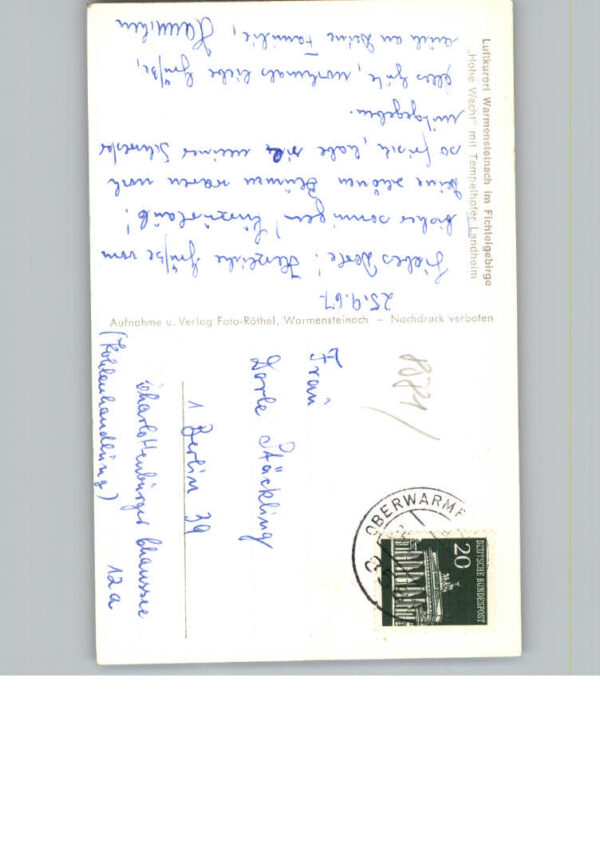 Luftkurort Warmensteinach im Fichtelgebirge
„Hohe Wacht" mit Tempelhofer Landheim
25.9.67.
Liebes Dorle! Herzliche Grüße vom
bisher sonnigen Kurzurlaub!
Deine schönen Blumen waren noch
so frisch, habe sie meiner Schwester
mitgegeben.
Alles Gute, nochmals liebe Grüße,
auch an Deine Familie,
Aufnahme u. Verlag Foto-Röthel, Warmensteinach. – Nachdruck verboten
1871/
OBERWARME
20
DEUTSCHE BUNDESPOST
Frau
Dorle Stäckling
1 Berlin 39
Charlottenburger Chaussee
12a
(Kohlenhandlung)